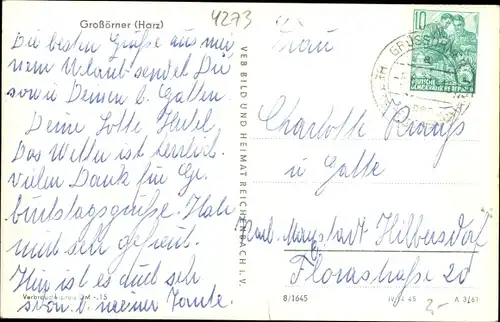 Großörner (Harz)
4273
Die besten Grüße aus mei
nem Urlaub sendet Dir
sowie Deinem b. Gatten.
Deine Lotte
Das Wetter ist herrlich.
vielen Dank für Ge
burtstagsgrüße. Habe
mich sehr gefreut.
Hier ist es auch sehr
schön b. meiner Tante.
Verbraucherpreis DM -.15
VEB BILD UND HEIMAT REICHENBACH I. V.
Frau
Charlotte
u Gatte
Karl-Marx-Stadt Hilbersdorf
Florastraße 20
10
DEUTSCHE
DEMOKRATISCHE REPUBLIK
B/1645
IV/14 45
A 3/61
2,-